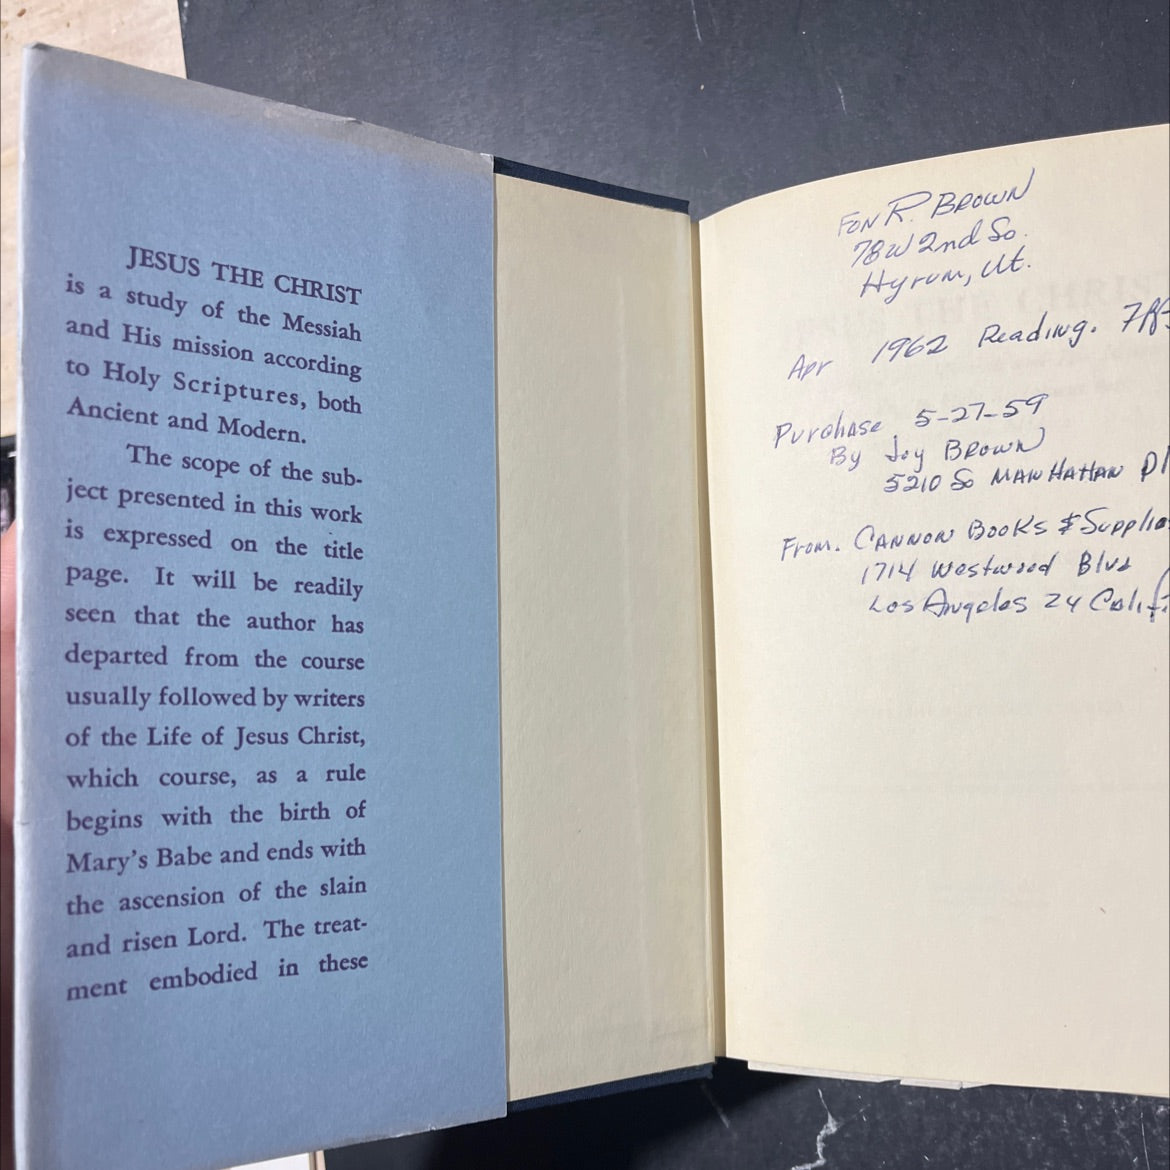 JESUS THE CHRIST
is a study of the Messiah
and His mission according
to Holy Scriptures, both
Ancient and Modern.
The scope of the sub-
ject presented in this work
is expressed on the title
page. It will be readily
seen that the author has
departed from the course
usually followed by writers
of the Life of Jesus Christ,
which course, as a rule
begins with the birth of
Mary's Babe and ends with
the ascension of the slain
and risen Lord. The treat-
ment embodied in these
FON R. BROWN
78 W 2nd So.
Hyrum, Ut.
Apr 1962 Reading.
Purchase 5-27-59
By Joy BROWN
5210 So MANHATTAN Pl
From. CANNON BOOKS & Supplie
1714 Westwood Blvd
Los Angeles 24 Calif.
THE CHRIST